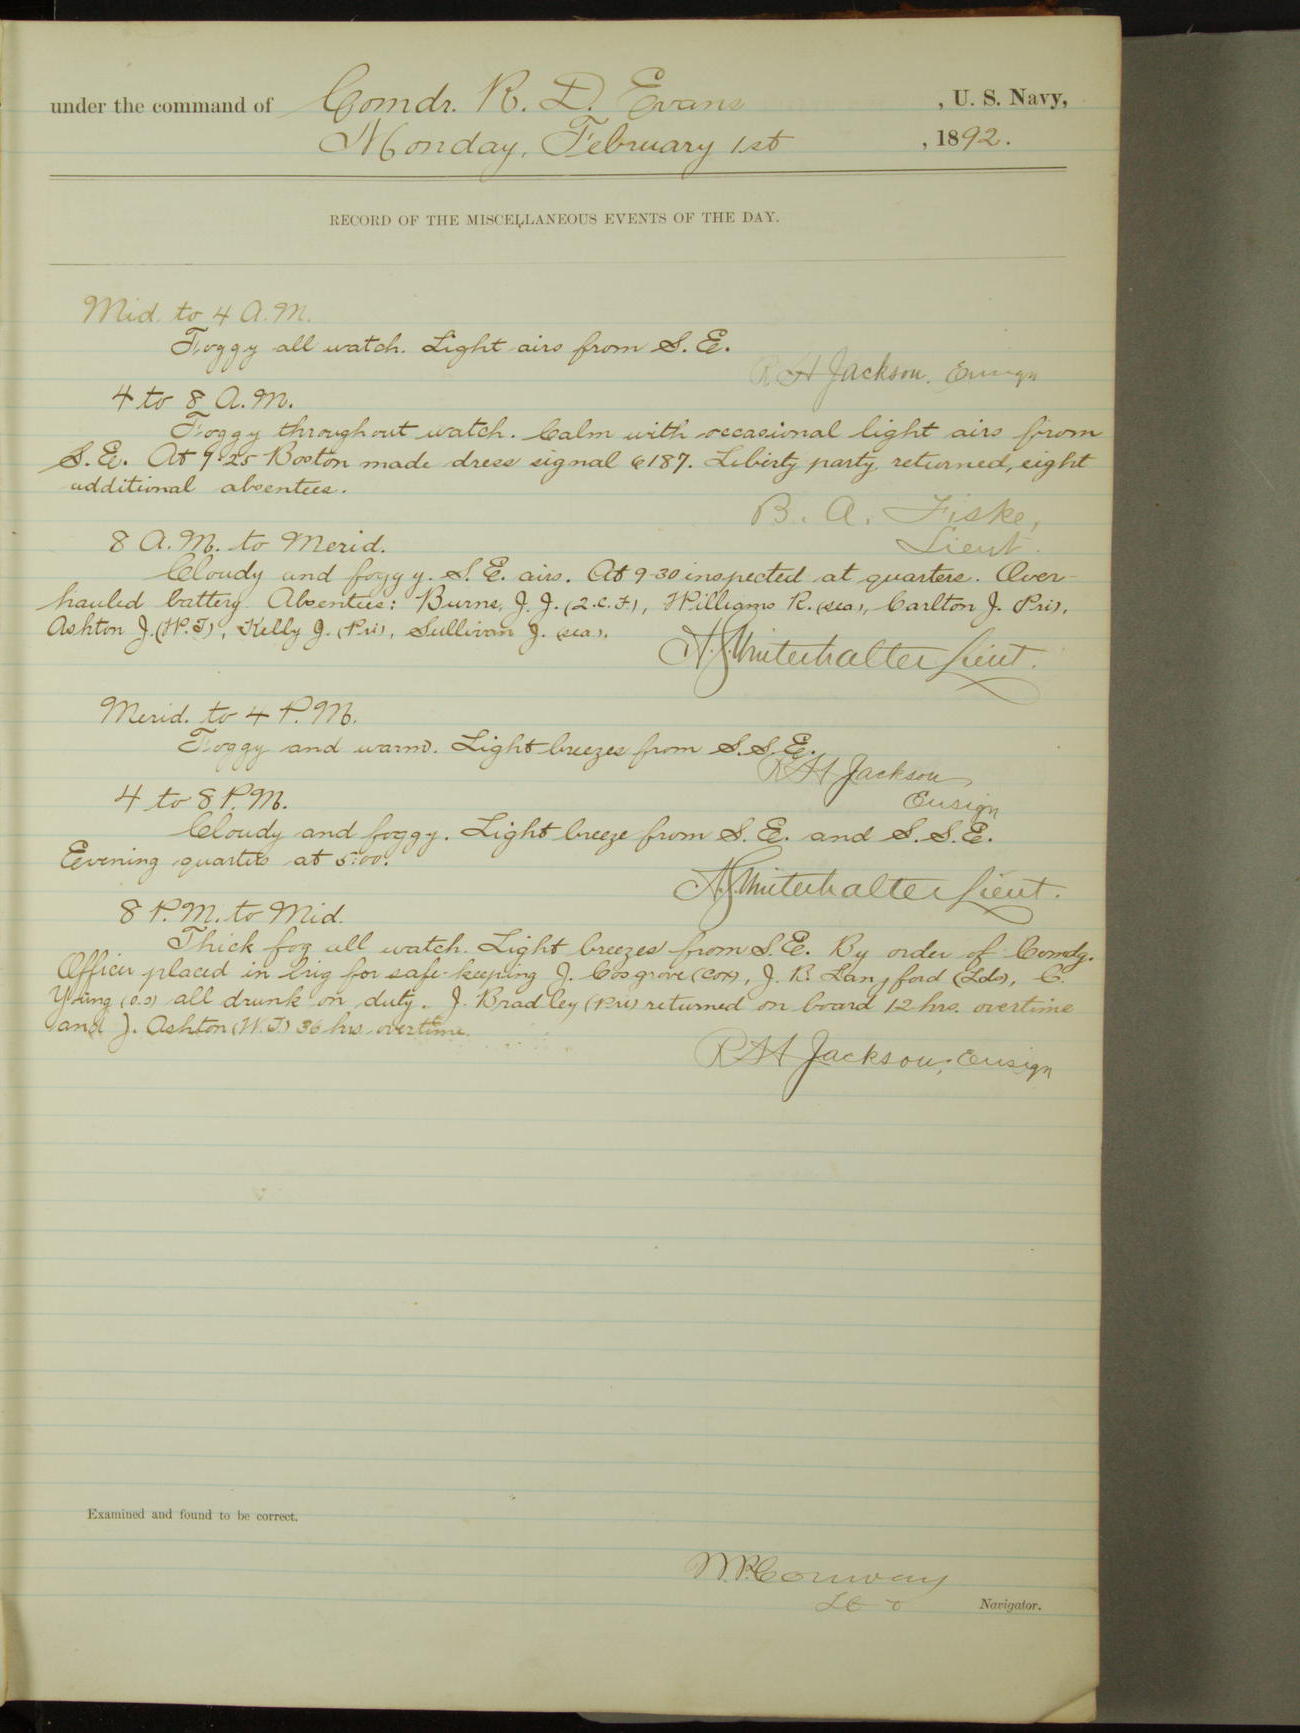 under the command of Comdr. R. D. Evans, U. S. Navy,
Monday, February 1st, 1892.
RECORD OF THE MISCELLANEOUS EVENTS OF THE DAY.
Mid. to 4 A.M.
Foggy all watch. Light airs from S.E.
R H Jackson, Ensign
4 to 8 A.M.
Foggy throughout watch. Calm with occasional light airs from
S.E. At 7.25 Boston made dress signal 6187. Liberty party returned, eight
additional absentees.
B. A. Fiske,
Lieut.
8 A.M. to Merid.
Cloudy and foggy. S.E. airs. At 9-30 inspected at quarters. Over-
hauled battery. Absentees: Burns, J. J. (2.C.F.), Williams R. (sea), Carlton J. (Pri),
Ashton J. (W.T), Kelly J. (Pri), Sullivan J. (sea).
A. G. Winterhalter Lieut.
Merid. to 4 P.M.
Foggy and warm. Light breezes from S.S.E.
R H Jackson
Ensign
4 to 8 P.M.
Cloudy and foggy. Light breeze from S.E. and S.S.E.
Evening quarters at 5:00.
A. G. Winterhalter Lieut.
8 P.M. to Mid.
Thick fog all watch. Light breezes from S.E. By order of Comdg.
Officer placed in brig for safe-keeping J. Cosgrove (Cox), J. R. Langford (Lds), C.
Young (O.S) all drunk on duty. J. Bradley (Pri) returned on board 12 hrs. overtime
and J. Ashton (W.T) 36 hrs overtime.
R H Jackson, Ensign
Examined and found to be correct.
W. P. Conway
Lt
Navigator.